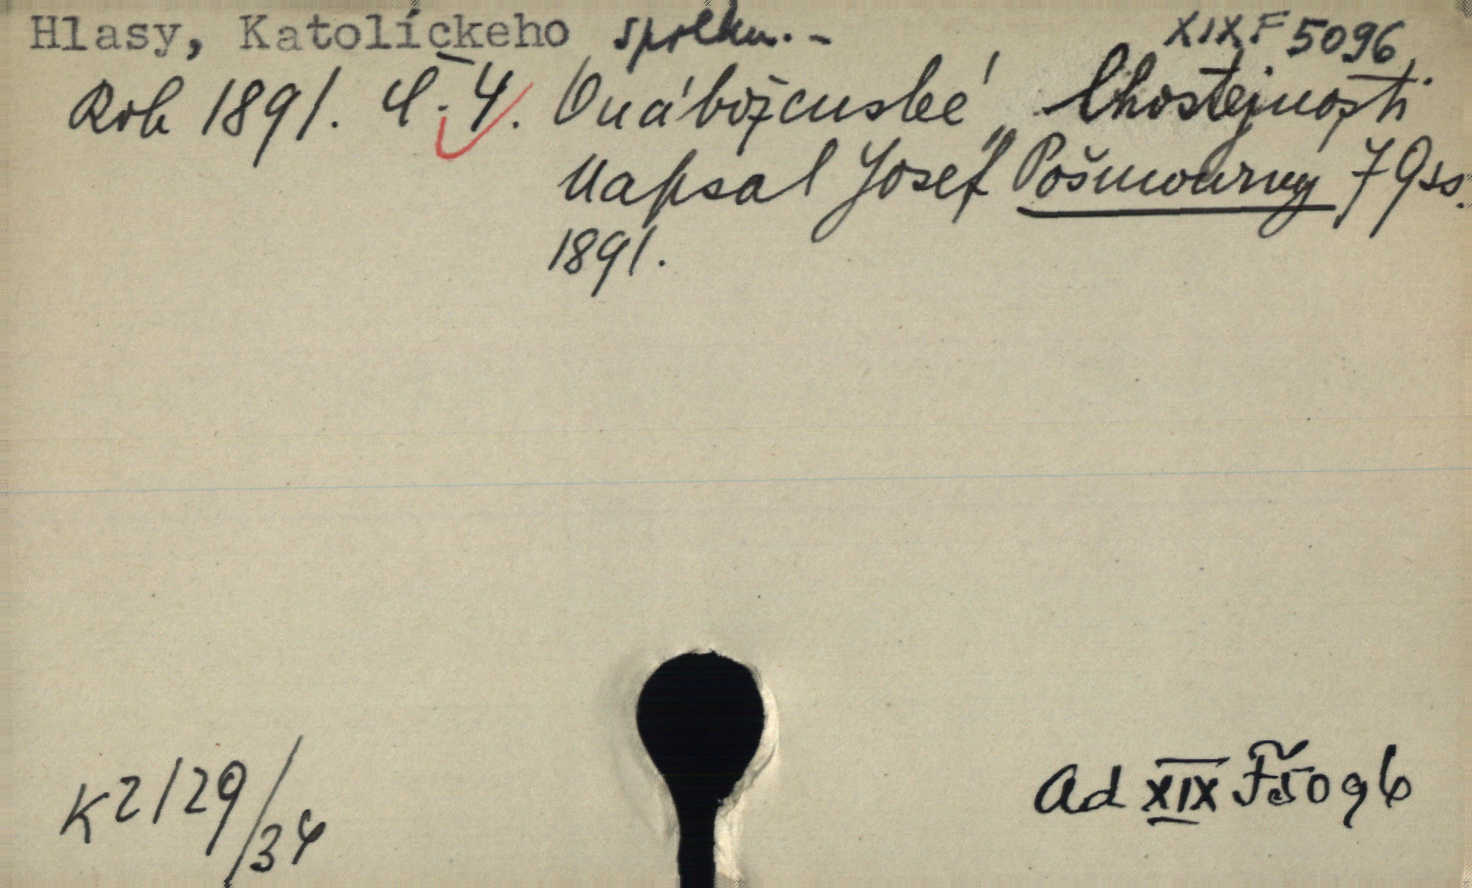 Hlasy, Katolíckeho spolku.-
XIX F 5096
Rok 1891. č. 4. O náboženské lhostejnosti
Napsal Josef Pošmourný 79 ss.
1891.
K 2129/34
Ad XIX F 5096